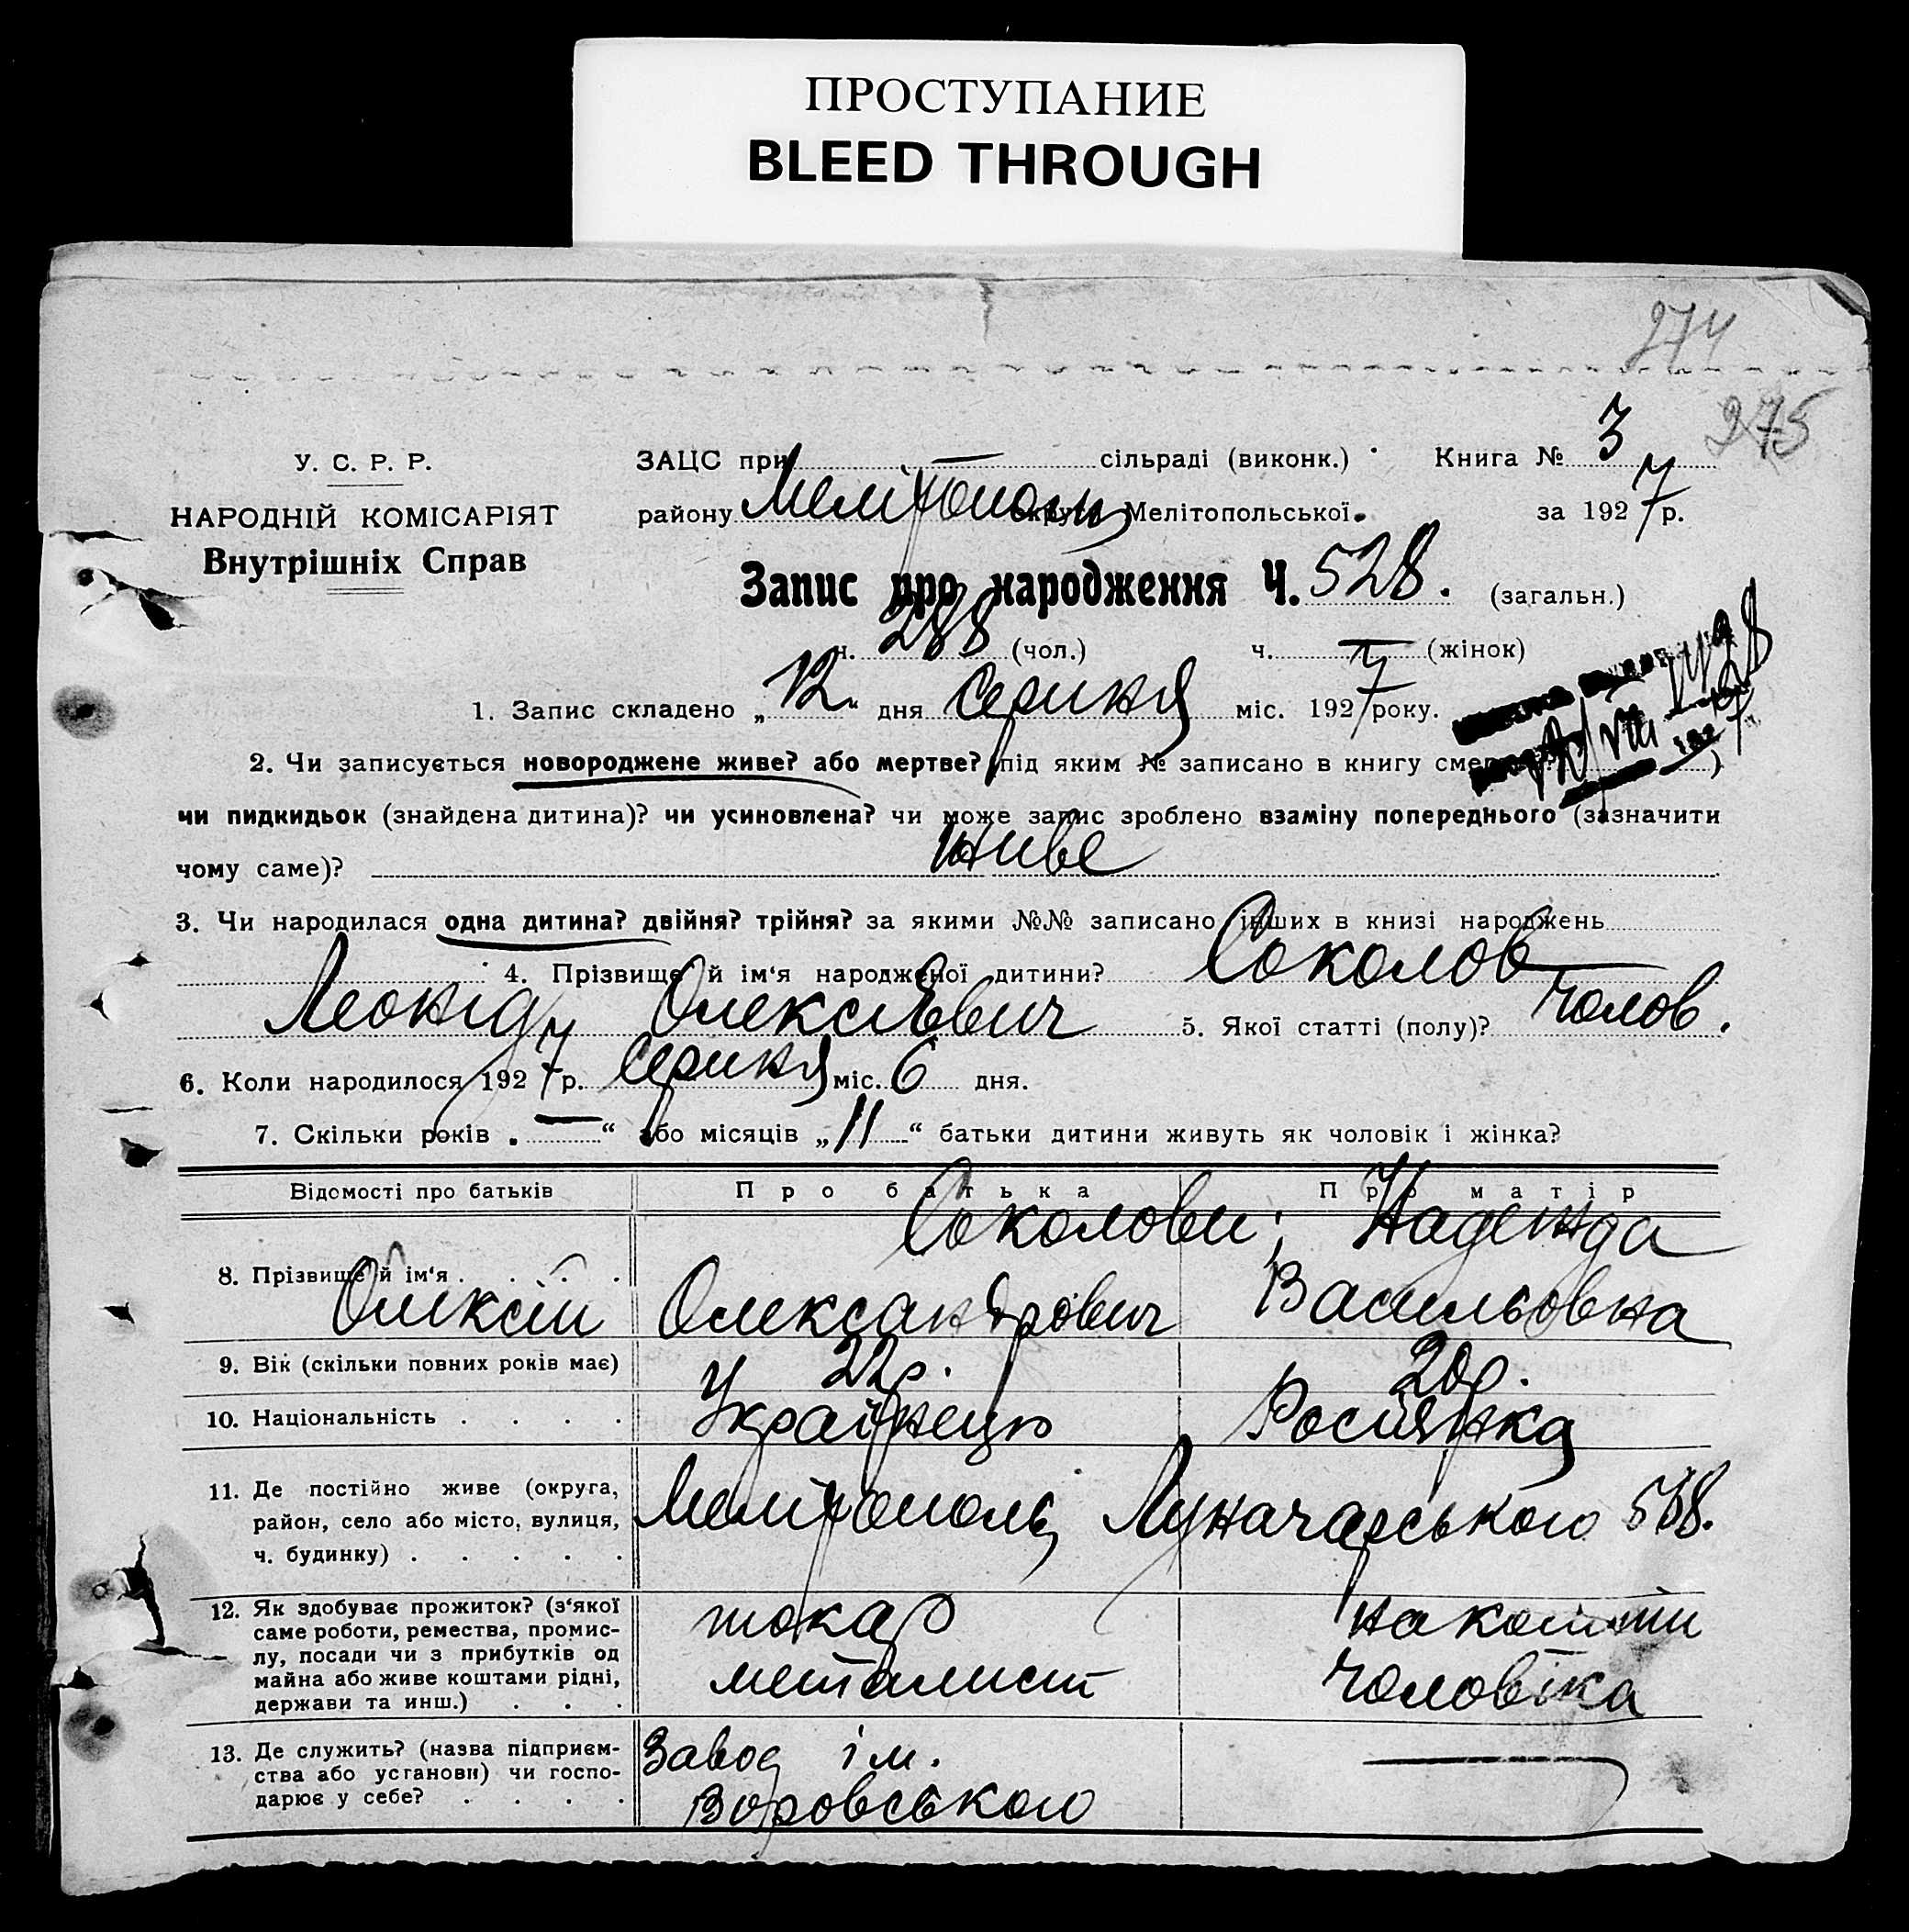 ПРОСТУПАНИЕ
BLEED THROUGH
274
275
У. С. Р. Р.
НАРОДНІЙ КОМІСАРІЯТ
Внутрішніх Справ
ЗАЦС при — сільраді (виконк.) Книга № 3
району Мелітополь округи Мелітопольської за 1927 р.
Запис про народження Ч. 528. (загальн.)
ч. 288 (чол.) ч. — (жінок)
1. Запис складено „12“ дня серпня міс. 1927 року.
2. Чи записується новороджене живе? або мертве? (під яким № записано в книгу смерт )
чи пидкидьок (знайдена дитина)? чи усиновлена? чи може запис зроблено взаміну попереднього (зазначити
чому саме)? живе
3. Чи народилася одна дитина? двійня? трійня? за якими №№ записано інших в книзі народжень
4. Прізвище й ім'я народженої дитини? Соколов
Леонід Олексієвич 5. Якої статті (полу)? чолов.
6. Коли народилося 1927 р. серпня міс. 6 дня.
7. Скільки років „—“ або місяців „11“ батьки дитини живуть як чоловік і жінка?
Відомості про батьків Про батька Про матір
Соколови; Надежда
8. Прізвище й ім'я . . . .
Олексій Олександрович Васильовна
9. Вік (скільки повних років має) 22р. 20р.
10. Національність . . . . Українець Росіянка
11. Де постійно живе (округа,
район, село або місто, вулиця,
ч. будинку) . . . . .
Мелітополь Луначарського 568.
12. Як здобуває прожиток? (з'якої
саме роботи, ремества, промис-
лу, посади чи з прибутків од
майна або живе коштами рідні,
держави та инш.) . . .
токар
металист
на кошти
чоловіка
13. Де служить? (назва підприєм-
ства або установи) чи госпо-
дарює у себе? . . . .
Завод ім.
Воровського
—